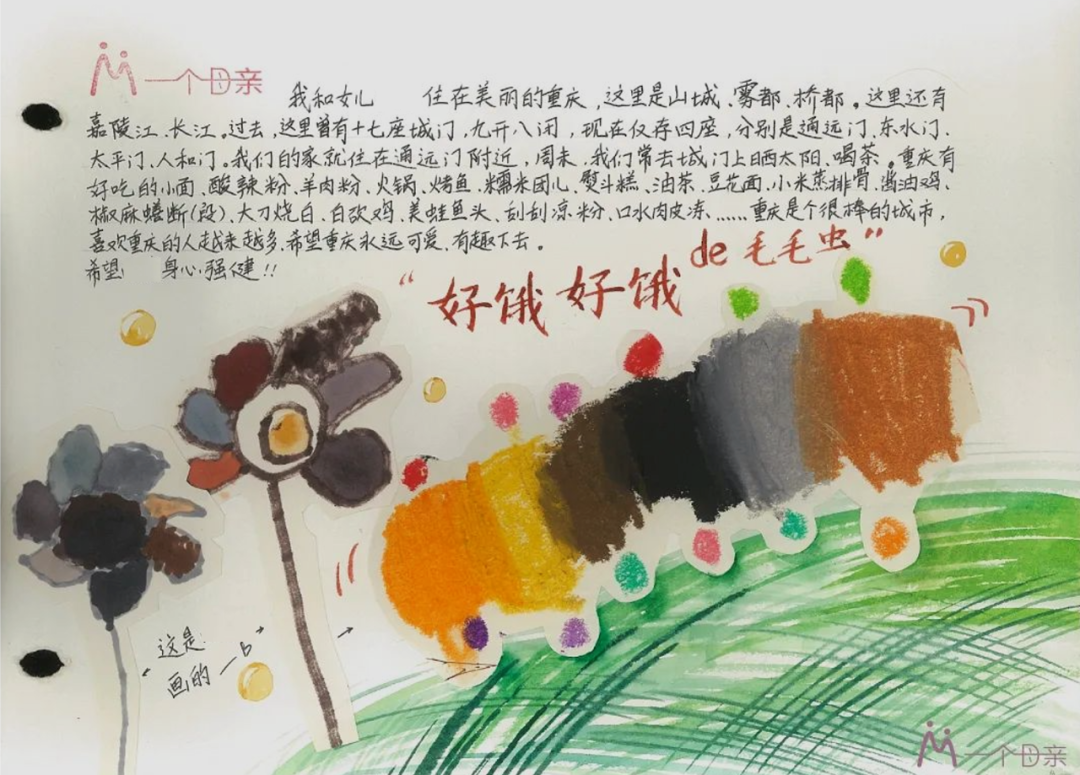 一个母亲
我和女儿 住在美丽的重庆,这里是山城、雾都、桥都。这里还有
嘉陵江、长江。过去,这里曾有十七座城门,九开八闭,现在仅存四座,分别是通远门、东水门、
太平门、人和门。我们的家就住在通远门附近,周末,我们常去城门上晒太阳、喝茶。重庆有
好吃的小面、酸辣粉、羊肉粉、火锅、烤鱼、糯米团儿、熨斗糕、油茶、豆花面、小米蒸排骨、酱油鸡、
椒麻鳝断(段)、大刀烧白、白砍鸡、美蛙鱼头、刮刮凉粉、口水肉皮冻、......重庆是个很棒的城市,
喜欢重庆的人越来越多,希望重庆永远可爱、有趣下去。
希望 身心强健!!
“好饿好饿de毛毛虫”
这是
画的
一个母亲